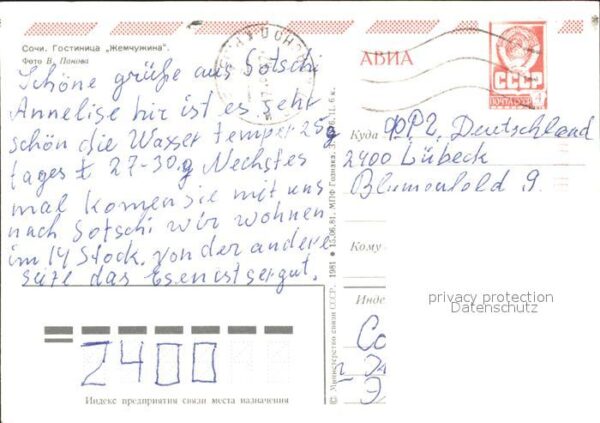 Сочи. Гостиница „Жемчужина".
Фото В. Панова
Schöne grüße aus Sotschi
Annelise hir ist es sehr
schön die Wasser temper 25g
tages t 27-30.g Nechstes
mal komen sie mit uns
nach Sotschi wir wohnen
im 14 Stock. von der andere
seite das Esen ist ser gut.
2400
Индекс предприятия связи места назначения
© Министерство связи СССР. 1981 • 15.06.81. МПФ Гознака.
АВИА
СССР
ПОЧТА
Куда ФРГ. Deutschland
2400 Lübeck
Blumenfold 9.
Кому
Инде
privacy protection
Datenschutz
Со